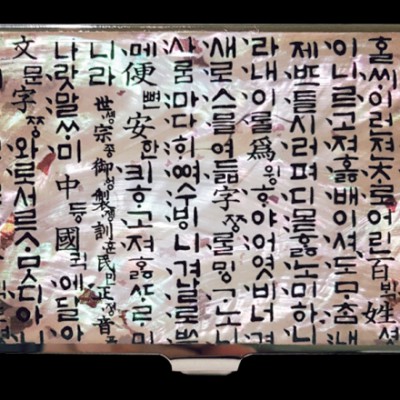 홀씨이런젼ᄎᆞ로어린百ᄇᆡᆨ姓
이니르고져홇배이셔도ᄆᆞᄎᆞᆷ내
제ᄠᅳ들시러펴디몯ᄒᆞᇙ노미하니
라내이ᄅᆞᆯ爲윙ᄒᆞ야어엿비너겨
새로스믈여듧字ᄍᆞᆼᄅᆞᆯᄆᆡᇰᄀᆞ노니
사ᄅᆞᆷ마다ᄒᆡᅇᅧ수ᄫᅵ니겨날로ᄡᅮ
메便뼌安한킈ᄒᆞ고져ᄒᆞᇙᄯᆞᄅᆞ미
니라 世솅宗종御엉製졩訓훈民민正졍音
나랏말ᄊᆞ미中듕國귁에달아
文문字ᄍᆞᆼ와로서르ᄉᆞᄆᆞᆺ디아니